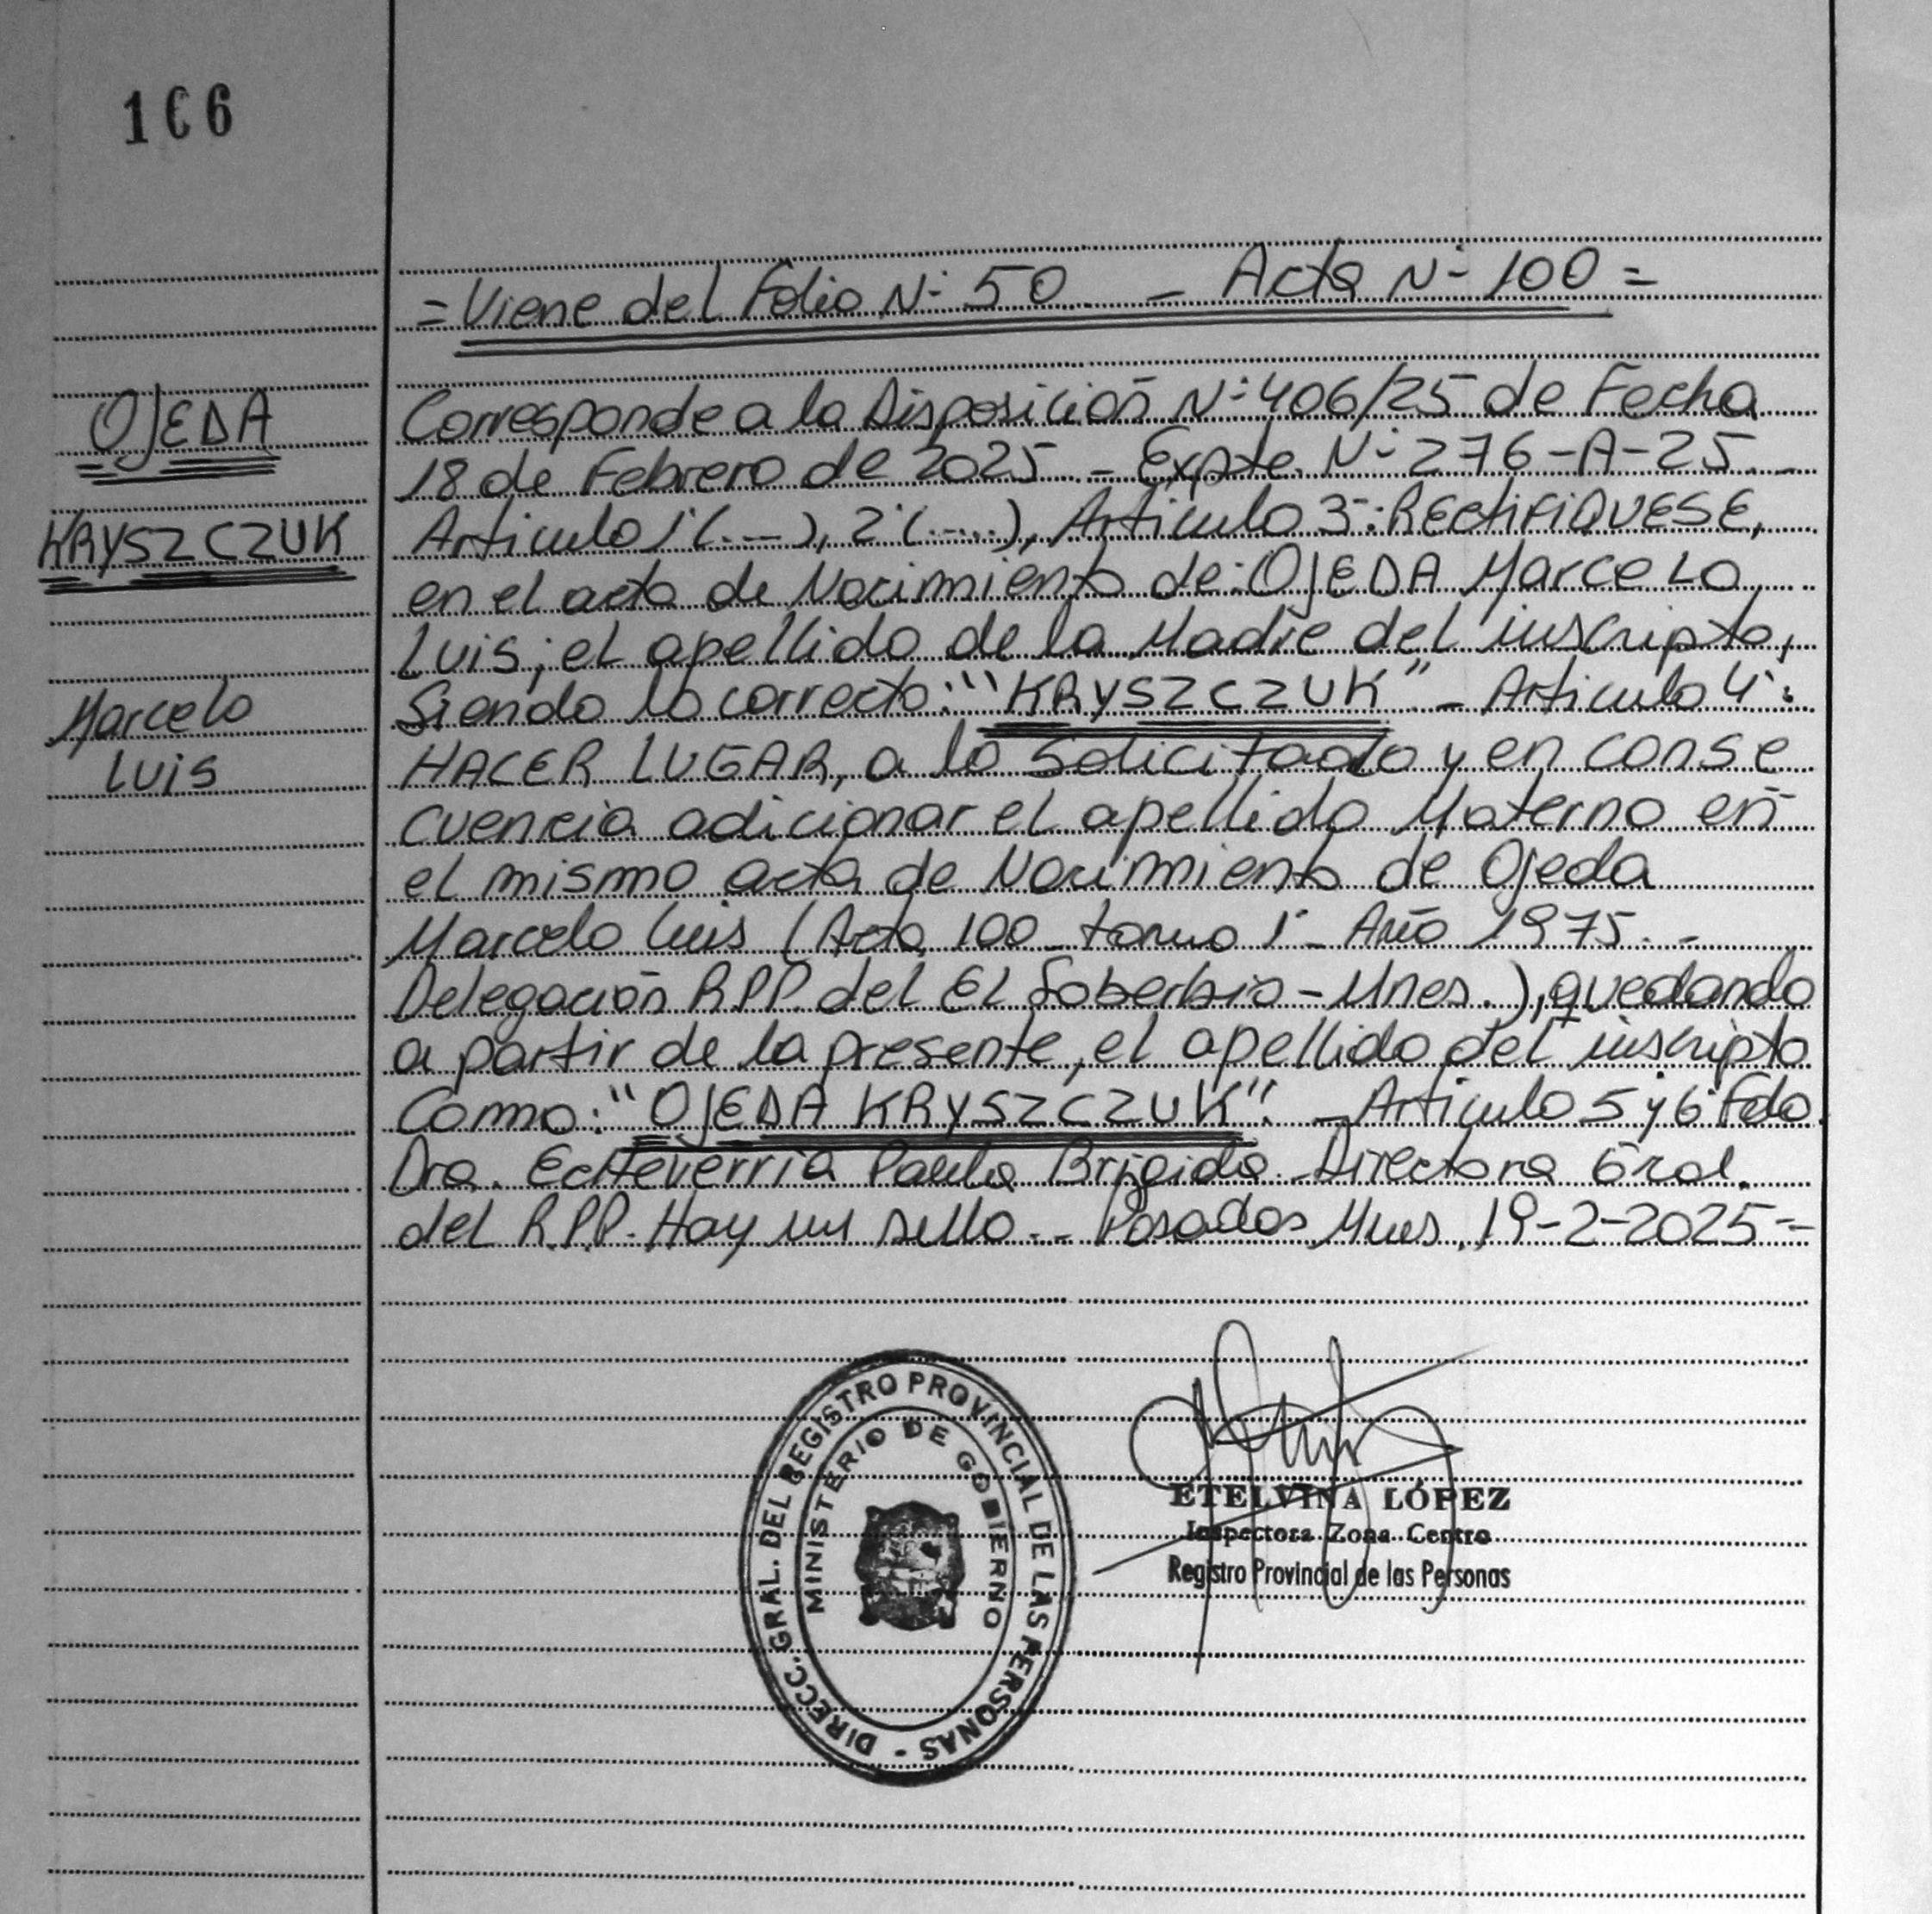 166
= Viene del Folio N° 50 - Acta N° 100 =
OJEDA
KRYSZCZUK
Marcelo
Luis
Corresponde a la Disposición N° 406/25 de Fecha
18 de Febrero de 2025 - Expte. N° 276-A-25.-
Articulo 1° (.--), 2° (....), Articulo 3°: RECtiFiQUESE,
en el acta de Nacimiento de: OJEDA Marcelo
Luis; el apellido de la Madre del inscripto,
Siendo lo correcto: "KRYSZCZUK" - Articulo 4°:
HACER LUGAR, a lo Solicitado y en conse
cuencia adicionar el apellido Materno en
el mismo acta de Nacimiento de Ojeda
Marcelo Luis (Acta 100 - tomo 1° - Año 1975.-
Delegación R.P.P. del EL Soberbio - Mnes.), quedando
a partir de la presente, el apellido del inscripto
Como: "OJEDA KRYSZCZUK". - Articulo 5 y 6 Fdo
Dra. Echeverría Paula Brigida - Directora Gral.
del R.P.P. Hay un sello.-- Posadas Mnes, 19-2-2025 =
DIRECC. GRAL. DEL REGISTRO PROVINCIAL DE LAS PERSONAS -
MINISTERIO DE GOBIERNO
ETELVINA LÓPEZ
Inspectora Zona Centro
Registro Provincial de las Personas